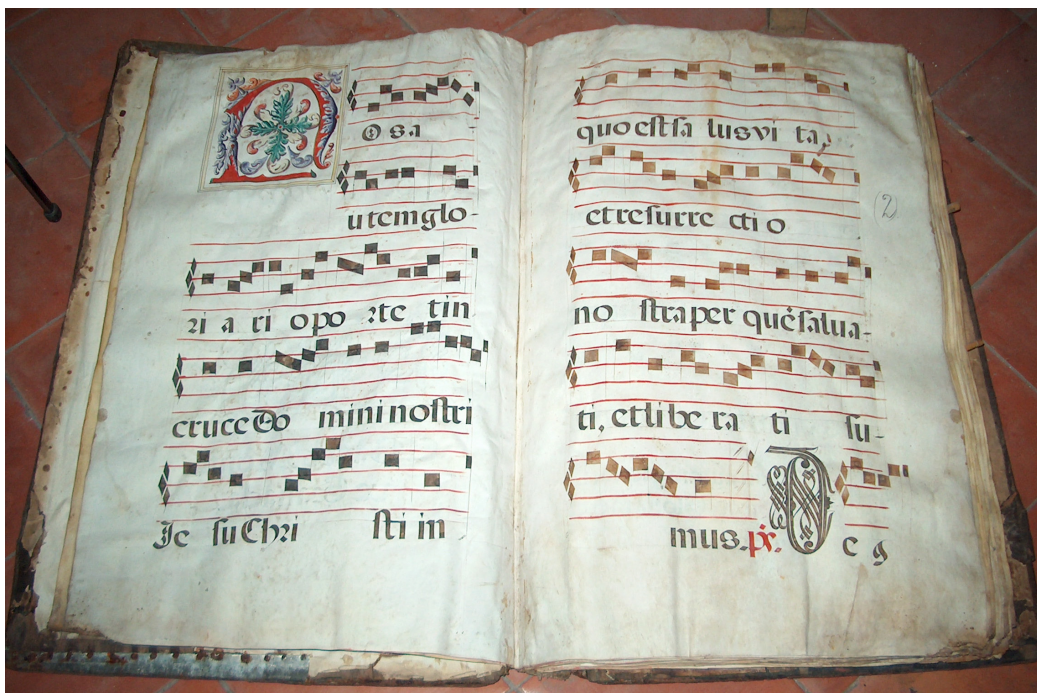 NOs a
utem glo-
ri a ri opo rte t in
cruce Do mini nostri
Je su Chri sti in
quo est sa lus vi ta,
et resurre cti o
2
no stra per quẽ salua-
ti, et libe ra ti su-
mus. ps. D e g